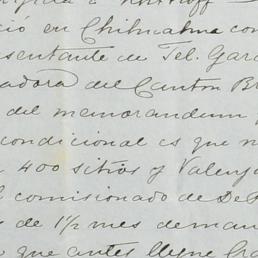 ció en Chihuahua con
sentante de Tel. Garc
adora del Canton Br
del memorandum
condicional es que n
400 sitios y Valenz
comisionado de De
de 1½ mes deman
que antes llegue Gra